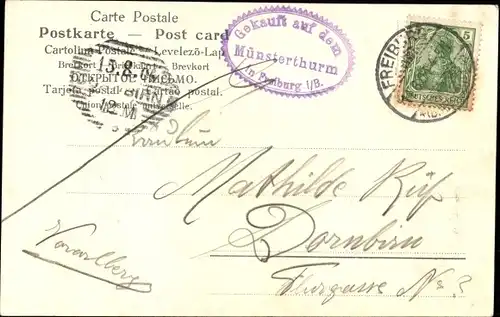 Carte Postale
Postkarte — Post card
Cartolina Postale — Levelezö-Lap
Brefkort — Briefkaart — Brevkort
ОТКРЫТОЕ ПИСЬМО.
Tarjeta postal — Cartão postal.
Union postale universelle.
15.8.
12 M
Gekauft auf dem
Münsterthurm
in Freiburg i/B.
FREIBURG
5
Mathilde Rüf
Dornbirn
Vorarlberg
Flurgasse No 3